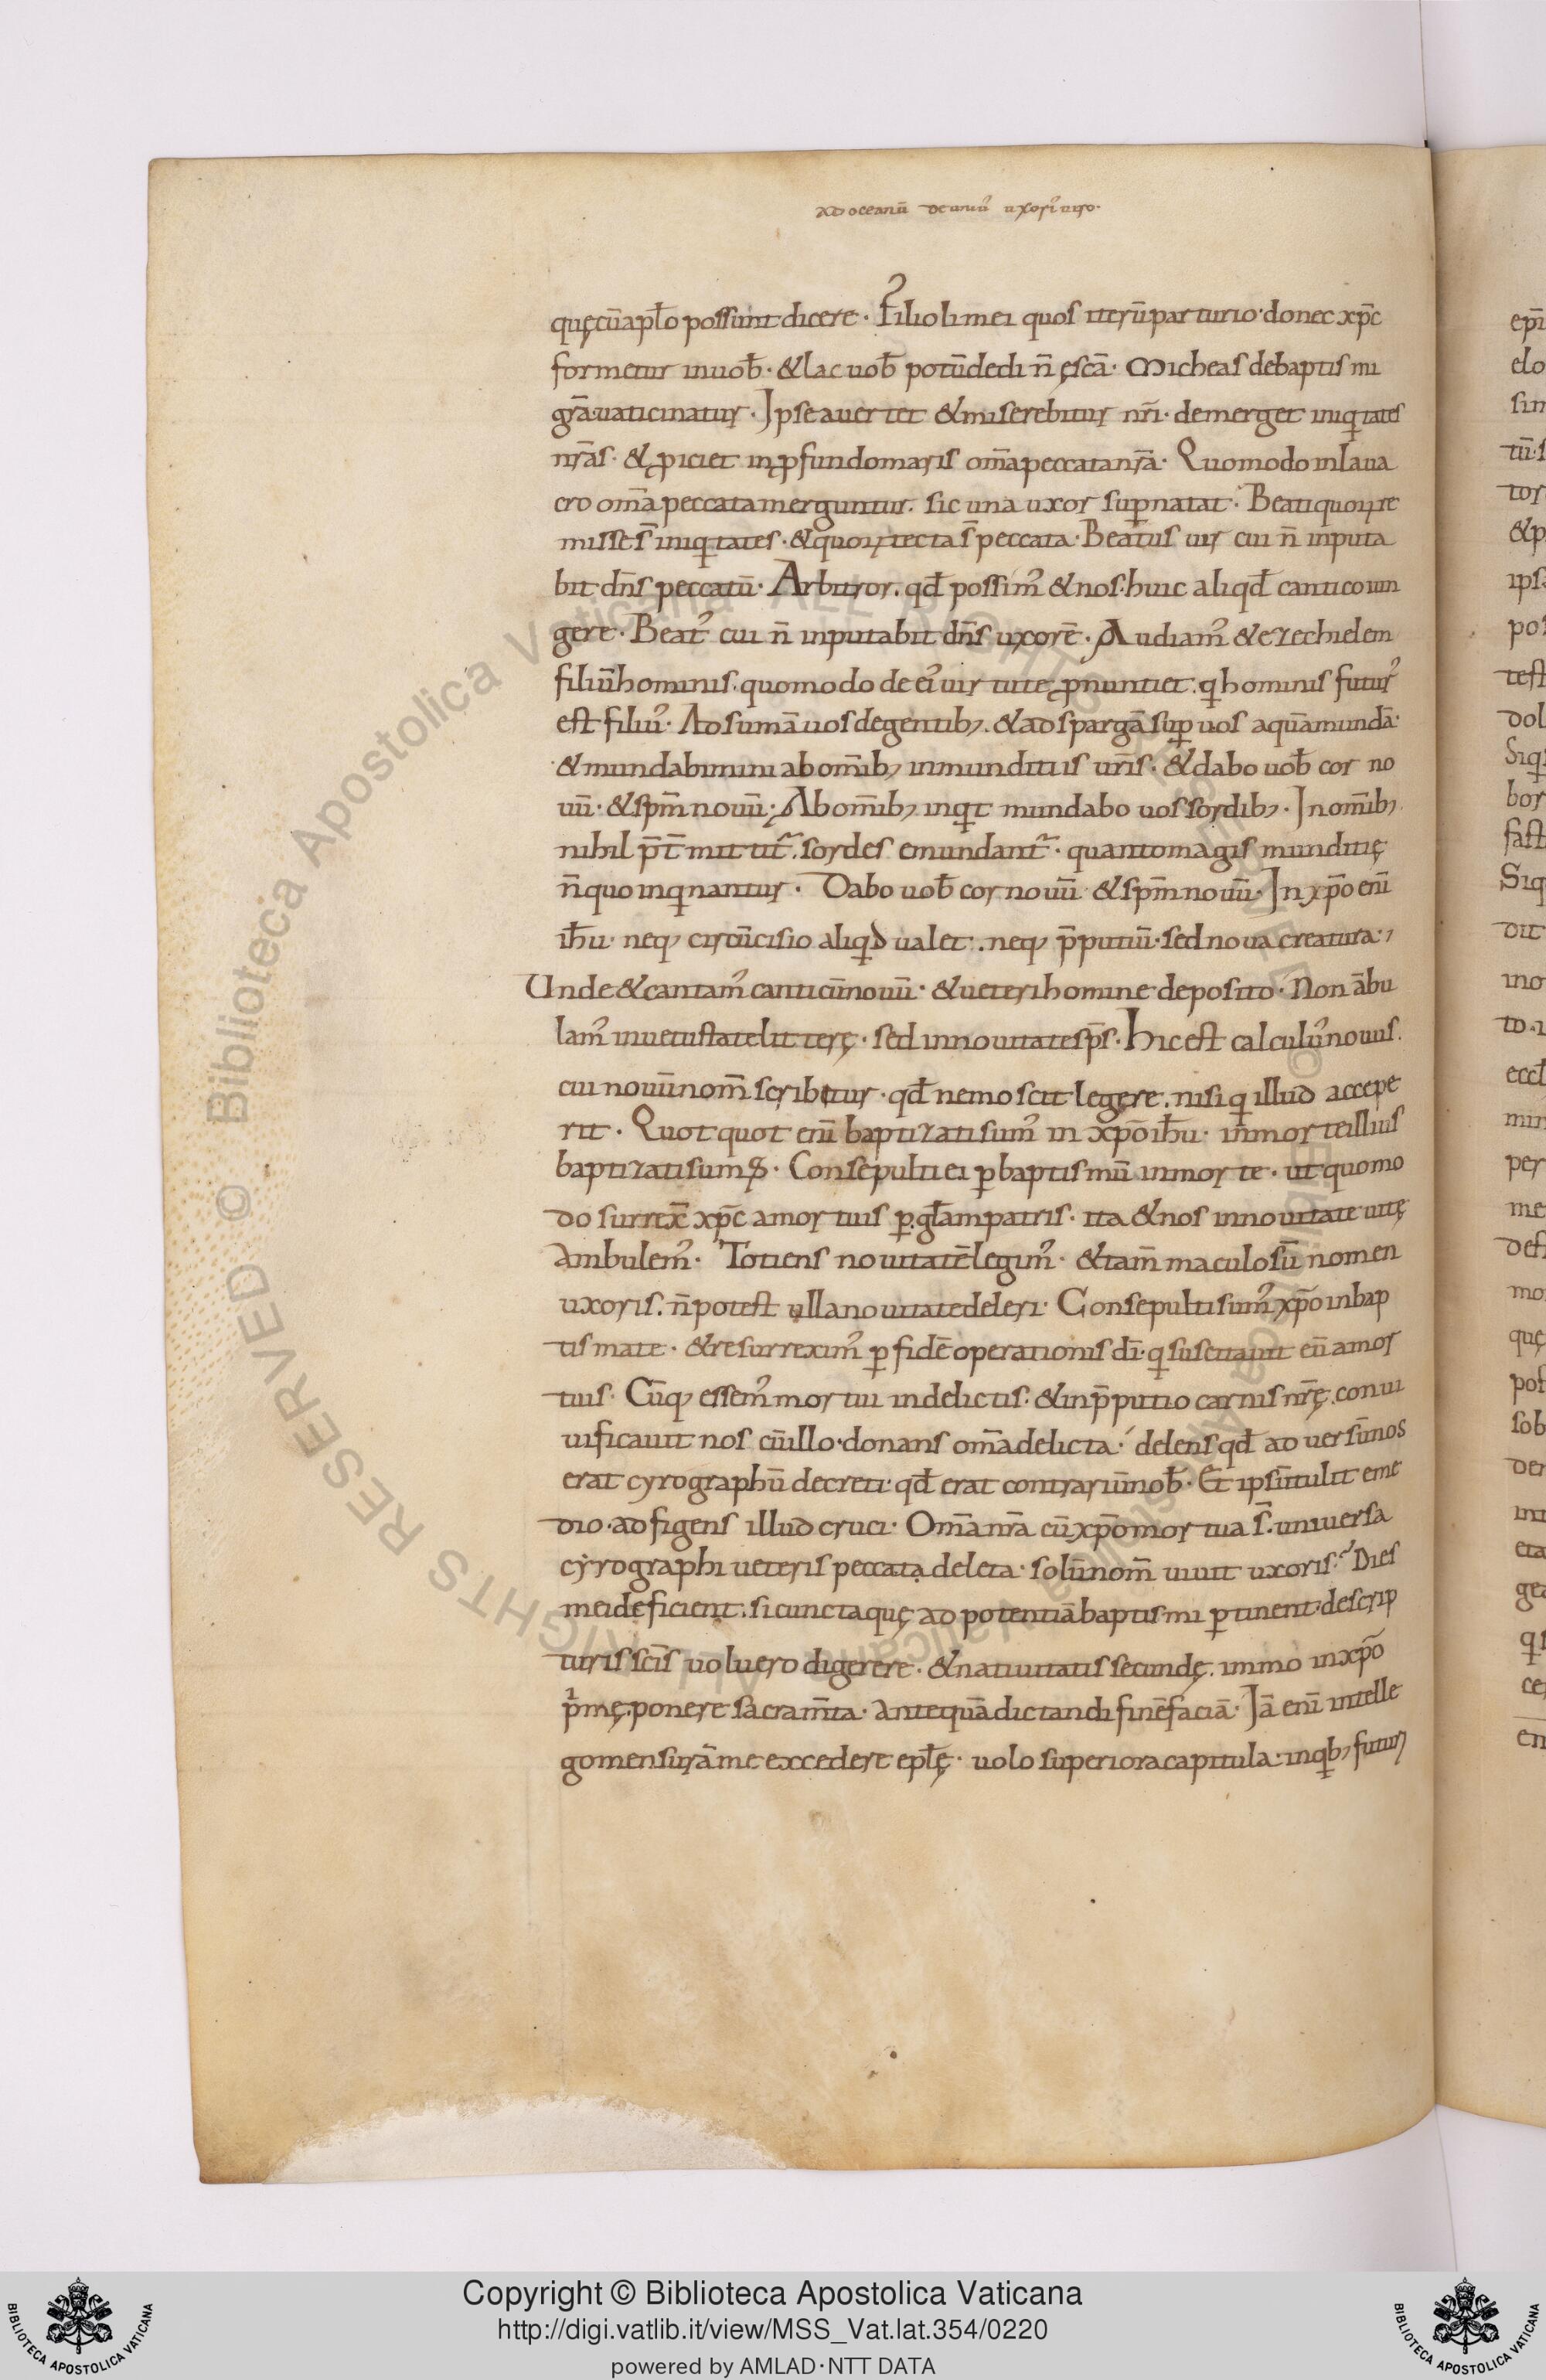 ad oceanū de uniꝰ uxorꝰ uiro·
quę cū apło possunt dicere· Filioli mei quos iterū parturio· donec xp̄c
formetur in uob̄· & lac uob̄ potū dedi n̄ ęscā· Micheas de baptismi
gr̄a uaticinatur· Ipse auertet & miserebitur nr̄i· demerget iniq̇tates
nr̄as· & ꝓiciet in ꝓfundo maris om̄a peccata nr̄a· Quomodo in laua
cro om̄a peccata merguntur. sic una uxor suꝑnatat· Beati quoꝝ re
missę s̄ iniq̇tates· & quoꝝ tecta s̄ peccata· Beatus uir cui n̄ inputa
bit dn̄s peccatū· Arbitror. qd̄ possimꝰ & nos· huic aliqd̄ cantico iun
gere· Beatꝰ cui n̄ inputabit dn̄s uxorē· Audiamꝰ & ezechielem
filiū hominis. quomodo de eiꝰ uirtute ꝓnuntiet. q̇ hominis futurꝰ
est filiuꝰ· Adsumā uos de gentibꝫ. & adspargā suꝑ uos aquā mundā·
& mundabimini ab om̄ibꝫ inmunditiis ur̄is· & dabo uob̄ cor no
uū· & sp̄m nouū· Ab om̄ibꝫ inq̇t mundabo uos sordibꝫ· In om̄ibꝫ
nihil p̄t̄mittit᷑. sordes emundant᷑· quanto magis munditię
n̄ quoinq̇nantur· Dabo uob̄ cor nouū & sp̄m nouū· In xp̄o enī
ih̄u· neqꝫ circūcisio aliq̇d ualet. neqꝫ p̄putiū· sed noua creatura·,
Unde & cantamꝰ canticū nouū· & ueteri homine deposito· Non ābu
lamꝰ in uetustate litterę· sed in nouitate sp̄s· Hic est calculuꝰ nouus.
cui nouū nom̄ scribitur· qd̄ nemo scit legere. nisi q̇ illud accepe
rit· Quotquot enī baptizati sumꝰ in xp̄o ih̄u· in morte illius
baptizati sumꝰ· Consepulti ei ꝑ baptismū in morte· ut quomo
do surrex̄ xp̄c a mortuis ꝑ gl̄am patris· ita & nos in nouitate uitę
ambulemꝰ· Totiens nouitatē legimꝰ· & tam̄ maculosū nomen
uxoris. n̄ potest ulla nouitate deleri· Consepulti sumꝰ xp̄o in bap
tismate· & resurreximꝰ ꝑ fidē operationis dī· q̇ suscitauit eū a mor
tuis· Cūqꝫ essemꝰ mortui in delictis· & in p̄putio carnis nr̄ę. conui
uificauit nos cū illo· donans om̄a delicta·ˊ delens qd̄ aduersū nos
erat cyrographū decreti· qd̄ erat contrariū nob̄· Et ipsū tulit e me
dio· adfigens illud cruci· Om̄a nr̄a cū xp̄o mortua s̄. uniuersa
cyrographi ueteris peccata deleta· solū nom̄ uiuit uxoris·ˀ Dies
mei deficient. si cuncta quę ad potentiā baptismi ꝑtinent· de scrip
turis sc̄is uoluero digerere· & natiuitatis secundę. immo in xp̄o
pⁱmę. ponere sacram̄ta· antequā dictandi finē faciā· Iā enī intelle
go mensurā me excedere epłę· uolo superiora capitula· in qḃꝫ futurꝰ